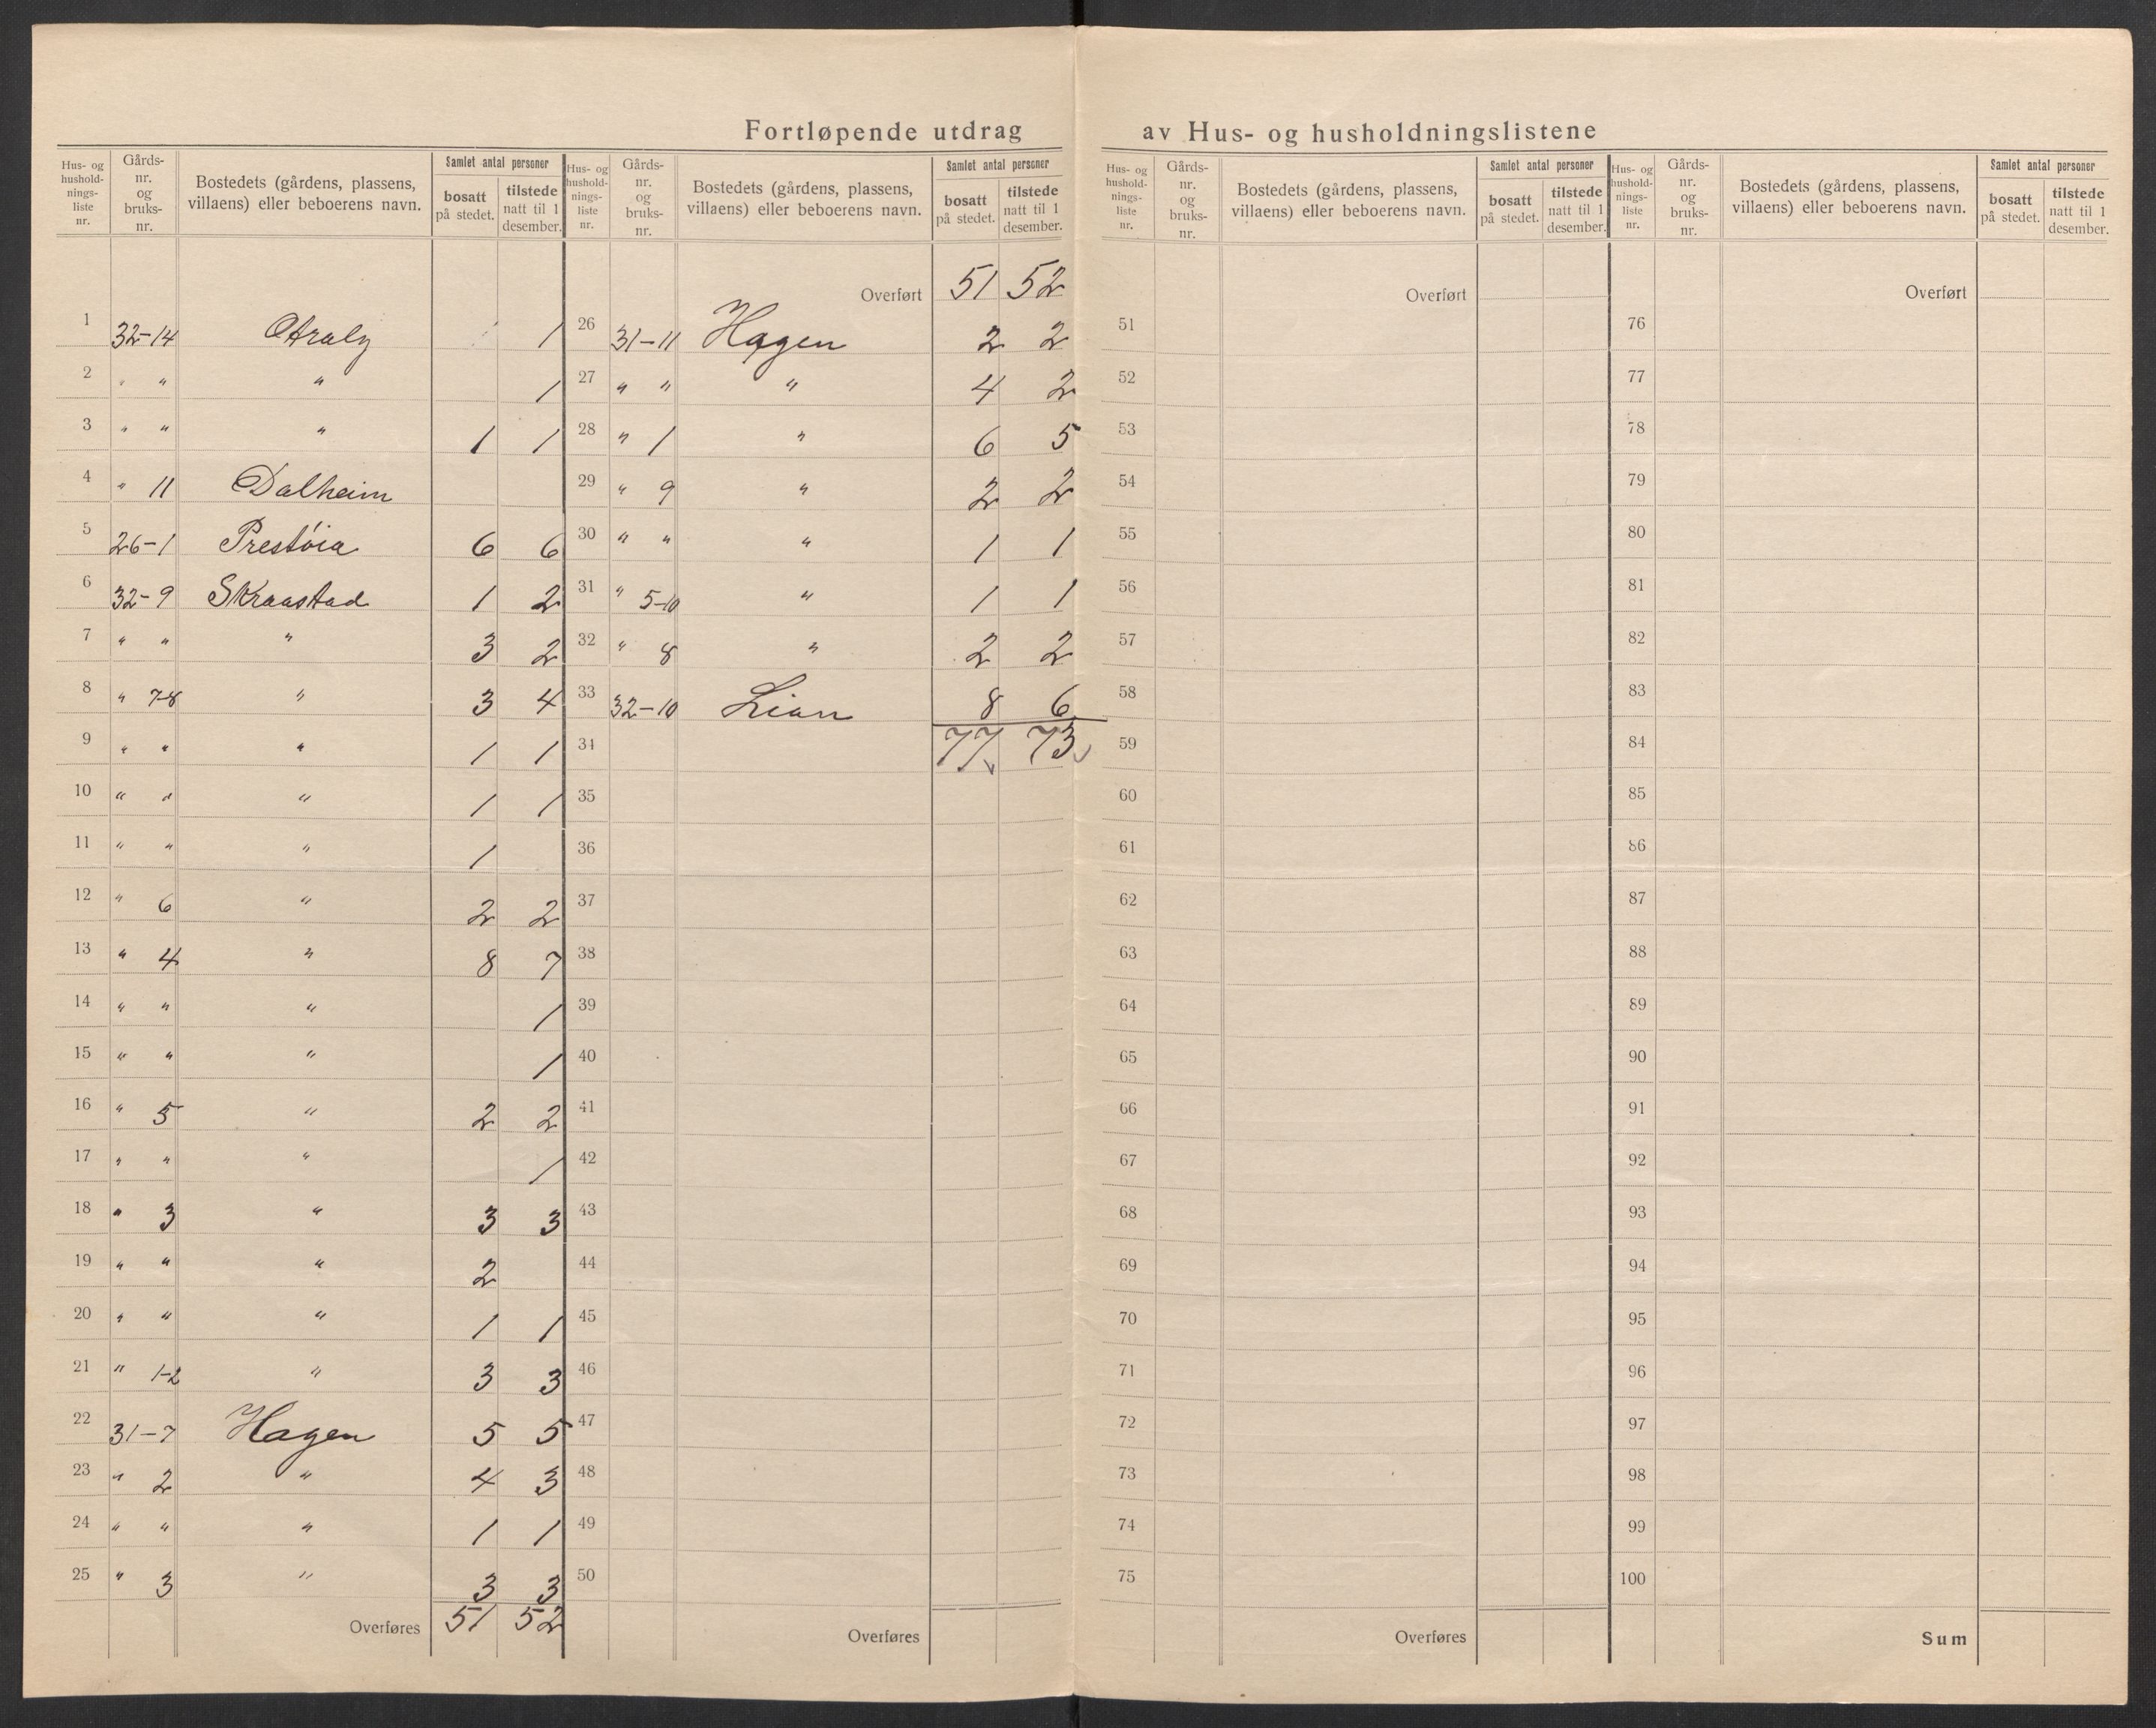 Fortløpende utdrag av Hus- og husholdningslistene
Hus- og hushold-nings-liste nr. | Gårds-nr. og bruks-nr. | Bostedets (gårdens, plassens, villaens) eller beboerens navn. | Samlet antal personer | bosatt på stedet. | tilstede natt til 1 desember.
1 32-14 1
2 " " " 1
3 " " " 1 1
4 " 11 Dalheim
5 26-1 Prestøia 6 6
6 32-9 Skraastad 1 2
7 " " " 3 2
8 " 7-8 " 3 4
9 " " " 1 1
10 " " " 1 1
11 " " " 1
12 " 6 " 2 2
13 " 4 " 8 7
14 " " " 1
15 " " " 1
16 " 5 " 2 2
17 " " " 1
18 " 3 " 3 3
19 " " " 2
20 " " " 1 1
21 " 1-2 " 3 3
22 31-7 Hagen 5 5
23 " 2 " 4 3
24 " " " 1 1
25 " 3 " 3 3
Overføres 51 52
Hus- og hushold-nings-liste nr. | Gårds-nr. og bruks-nr. | Bostedets (gårdens, plassens, villaens) eller beboerens navn. | Samlet antal personer | bosatt på stedet. | tilstede natt til 1 desember.
Overført 51 52
26 31-11 Hagen 2 2
27 " " " 4 2
28 " 1 " 6 5
29 " 9 " 2 2
30 " " " 1 1
31 " 5-10 " 1 1
32 " 8 " 2 2
33 32-10 Lian 8 6
34 77 73
35
36
37
38
39
40
41
42
43
44
45
46
47
48
49
50
Overføres
Hus- og hushold-nings-liste nr. | Gårds-nr. og bruks-nr. | Bostedets (gårdens, plassens, villaens) eller beboerens navn. | Samlet antal personer | bosatt på stedet. | tilstede natt til 1 desember.
Overført
51
52
53
54
55
56
57
58
59
60
61
62
63
64
65
66
67
68
69
70
71
72
73
74
75
Overføres
Hus- og hushold-nings-liste nr. | Gårds-nr. og bruks-nr. | Bostedets (gårdens, plassens, villaens) eller beboerens navn. | Samlet antal personer | bosatt på stedet. | tilstede natt til 1 desember.
Overført
76
77
78
79
80
81
82
83
84
85
86
87
88
89
90
91
92
93
94
95
96
97
98
99
100
Sum